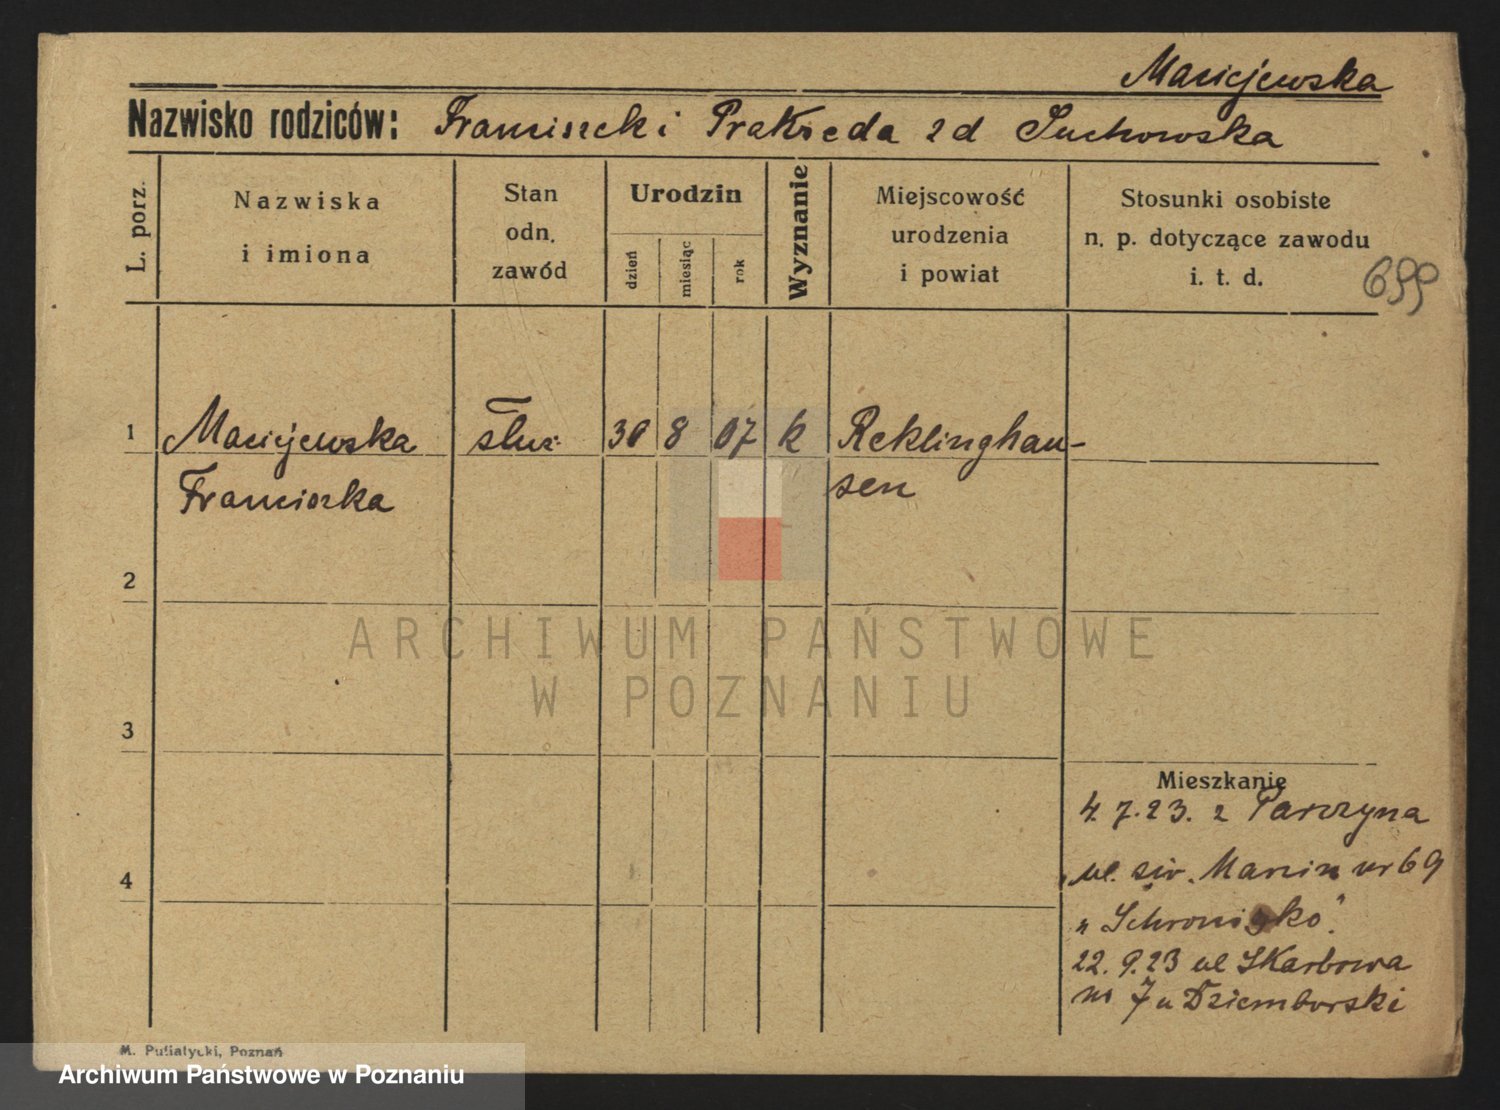 Maciejewska
Nazwisko rodziców: Franciszek i Prakseda zd Suchowska
L. porz.
Nazwiska
i imiona
Stan
odn.
zawód
Urodzin
dzień
miesiąc
rok
Wyznanie
Miejscowość
urodzenia
i powiat
Stosunki osobiste
n. p. dotyczące zawodu
i. t. d.
699
1 Maciejewska służ. 30 8 07 k Reklinghau-
Franciszka sen
2
3
4
Mieszkanie
4. 7. 23. z Parczyna
ul. św. Marcin nr 69
"Schronisko".
22. 9. 23 ul Skarbowa
nr 7 u Dziemborski
M. Putiatycki, Poznań
ARCHIWUM PAŃSTWOWE
W POZNANIU
Archiwum Państwowe w Poznaniu